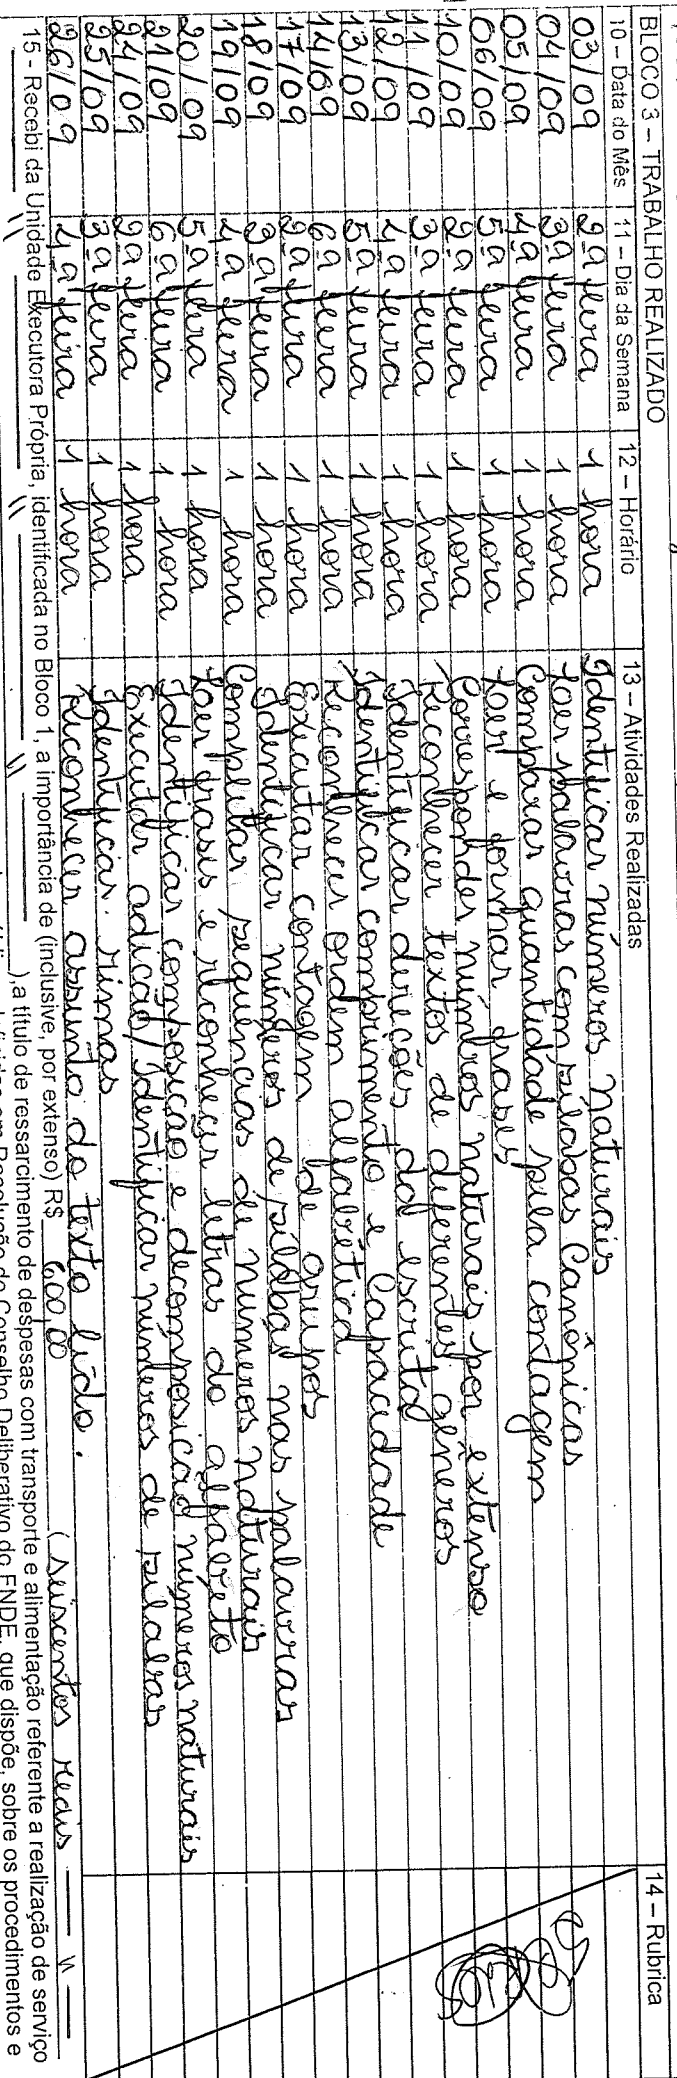 BLOCO 3 – TRABALHO REALIZADO
10 – Data do Mês 11 – Dia da Semana 12 – Horário 13 – Atividades Realizadas 14 – Rubrica
03/09 2ª feira 1 hora Identificar números naturais
04/09 3ª feira 1 hora Ler palavras com sílabas Canônicas
05/09 4ª feira 1 hora Comparar quantidade pela contagem
06/09 5ª feira 1 hora Ler e formar frases
10/09 2ª feira 1 hora Corresponder números naturais por extenso
11/09 3ª feira 1 hora Reconhecer textos de diferentes gêneros
12/09 4ª feira 1 hora Identificar direções da escrita
13/09 5ª feira 1 hora Identificar comprimento e Capacidade
14/09 6ª feira 1 hora Reconhecer ordem alfabética
17/09 2ª feira 1 hora Executar contagem de grupos
18/09 3ª feira 1 hora Identificar números de sílabas nas palavras
19/09 4ª feira 1 hora Completar sequências de números naturais
20/09 5ª feira 1 hora Ler frases e reconhecer letras do alfabeto
21/09 6ª feira 1 hora Identificar composição e decomposição números naturais
24/09 2ª feira 1 hora Executar adição/Identificar números de sílabas
25/09 3ª feira 1 hora Identificar rimas
26/09 4ª feira 1 hora Reconhecer assunto do texto lido.
15 - Recebi da Unidade Executora Própria, identificada no Bloco 1, a importância de (inclusive, por extenso) R$ 600,00 (seiscentos reais
), a título de ressarcimento de despesas com transporte e alimentação referente a realização de serviço
definidos em Resolução do Conselho Deliberativo do FNDE, que dispõe, sobre os procedimentos e